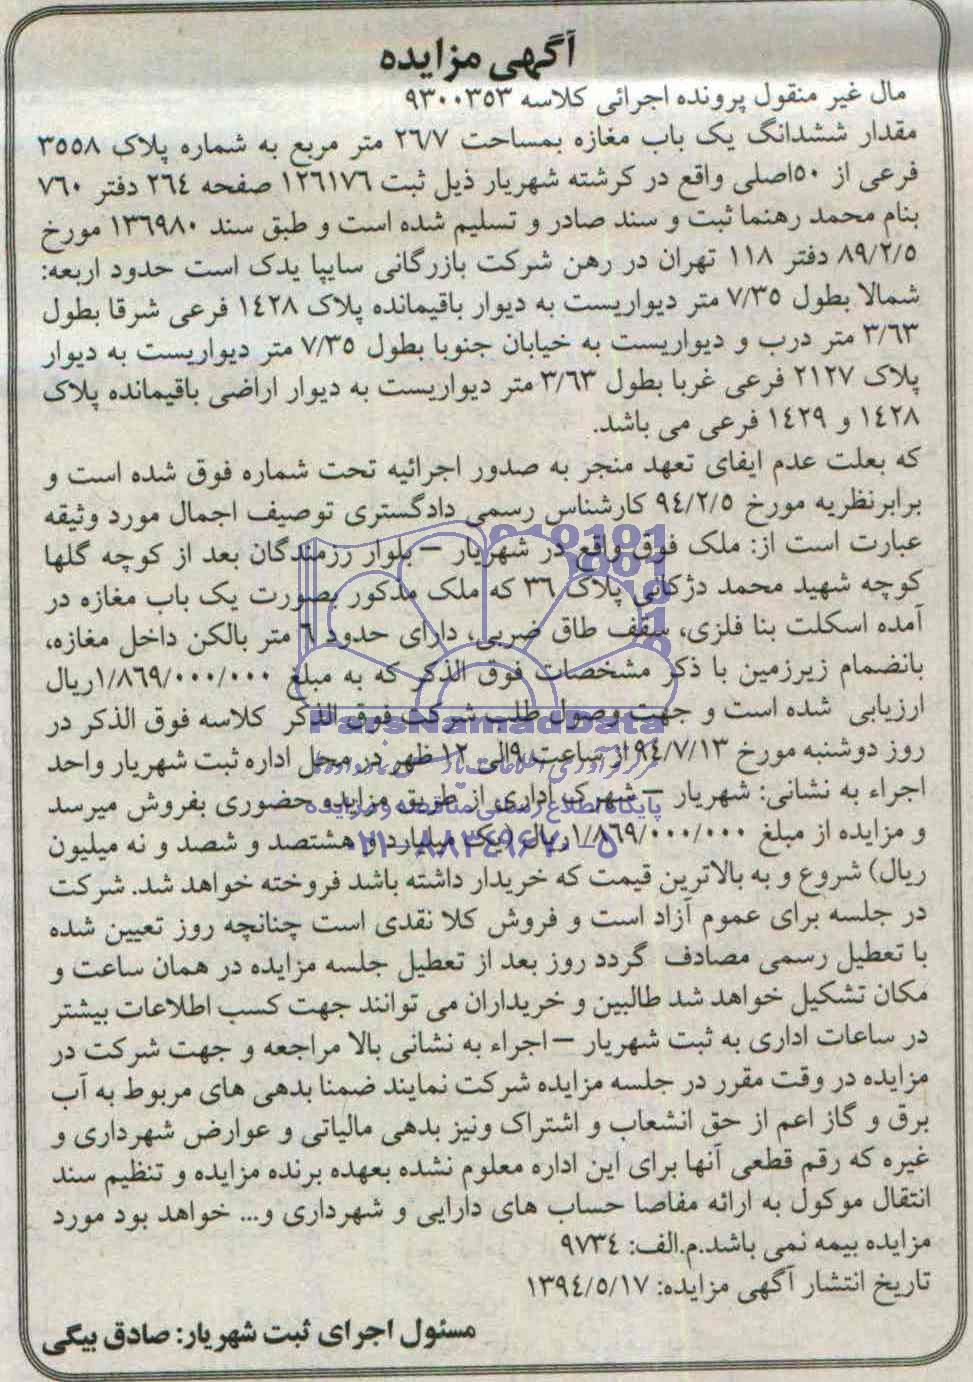 آگهی مزایده
مال غیر منقول پرونده اجرائی کلاسه ۹۳۰۰۳۵۳
مقدار ششدانگ یک باب مغازه بمساحت ۲۶/۷ متر مربع به شماره پلاک ۳۵۵۸
فرعی از ۵۰اصلی واقع در کرشته شهریار ذیل ثبت ۱۲۶۱۷۶ صفحه ۲۶۴ دفتر ۷۶۰
بنام محمد رهنما ثبت و سند صادر و تسلیم شده است و طبق سند ۱۳۶۹۸۰ مورخ
۸۹/۲/۵ دفتر ۱۱۸ تهران در رهن شرکت بازرگانی سایپا یدک است حدود اربعه:
شمالا بطول ۷/۳۵ متر دیواریست به دیوار باقیمانده پلاک ۱۴۲۸ فرعی شرقا بطول
۳/۶۳ متر درب و دیواریست به خیابان جنوبا بطول ۷/۳۵ متر دیواریست به دیوار
پلاک ۲۱۲۷ فرعی غربا بطول ۳/۶۳ متر دیواریست به دیوار اراضی باقیمانده پلاک
۱۴۲۸ و ۱۴۲۹ فرعی می باشد.
که بعلت عدم ایفای تعهد منجر به صدور اجرائیه تحت شماره فوق شده است و
برابرنظریه مورخ ۹۴/۲/۵ کارشناس رسمی دادگستری توصیف اجمال مورد وثیقه
عبارت است از: ملک فوق واقع در شهریار – بلوار رزمندگان بعد از کوچه گلها
کوچه شهید محمد دژکانی پلاک ۳۶ که ملک مذکور بصورت یک باب مغازه در
آمده اسکلت بنا فلزی، سقف طاق ضربی، دارای حدود ۶ متر بالکن داخل مغازه،
بانضمام زیرزمین با ذکر مشخصات فوق الذکر که به مبلغ ۱/۸۶۹/۰۰۰/۰۰۰ریال
ارزیابی شده است و جهت وصول طلب شرکت فوق الذکر کلاسه فوق الذکر در
ParsNamadData
روز دوشنبه مورخ ۹۴/۷/۱۳ از ساعت ۹الی ۱۲ ظهر در محل اداره ثبت شهریار واحد
اجراء به نشانی: شهریار – شهرک اداری از طریق مزایده حضوری بفروش میرسد
پایگاه اطلاع رسانی مناقصه و مزایده
و مزایده از مبلغ ۱/۸۶۹/۰۰۰/۰۰۰ریال (یک میلیارد و هشتصد و شصد و نه میلیون
۰۲۱-۸۸۳۴۹۶۷۰-۵
ریال) شروع و به بالاترین قیمت که خریدار داشته باشد فروخته خواهد شد. شرکت
در جلسه برای عموم آزاد است و فروش کلا نقدی است چنانچه روز تعیین شده
با تعطیل رسمی مصادف گردد روز بعد از تعطیل جلسه مزایده در همان ساعت و
مکان تشکیل خواهد شد طالبین و خریداران می توانند جهت کسب اطلاعات بیشتر
در ساعات اداری به ثبت شهریار –اجراء به نشانی بالا مراجعه و جهت شرکت در
مزایده در وقت مقرر در جلسه مزایده شرکت نمایند ضمنا بدهی های مربوط به آب
برق و گاز اعم از حق انشعاب و اشتراک ونیز بدهی مالیاتی و عوارض شهرداری و
غیره که رقم قطعی آنها برای این اداره معلوم نشده بعهده برنده مزایده و تنظیم سند
انتقال موکول به ارائه مفاصا حساب های دارایی و شهرداری و... خواهد بود مورد
مزایده بیمه نمی باشد.م.الف: ۹۷۳۴
تاریخ انتشار آگهی مزایده: ۱۳۹۴/۵/۱۷
مسئول اجرای ثبت شهریار: صادق بیگی